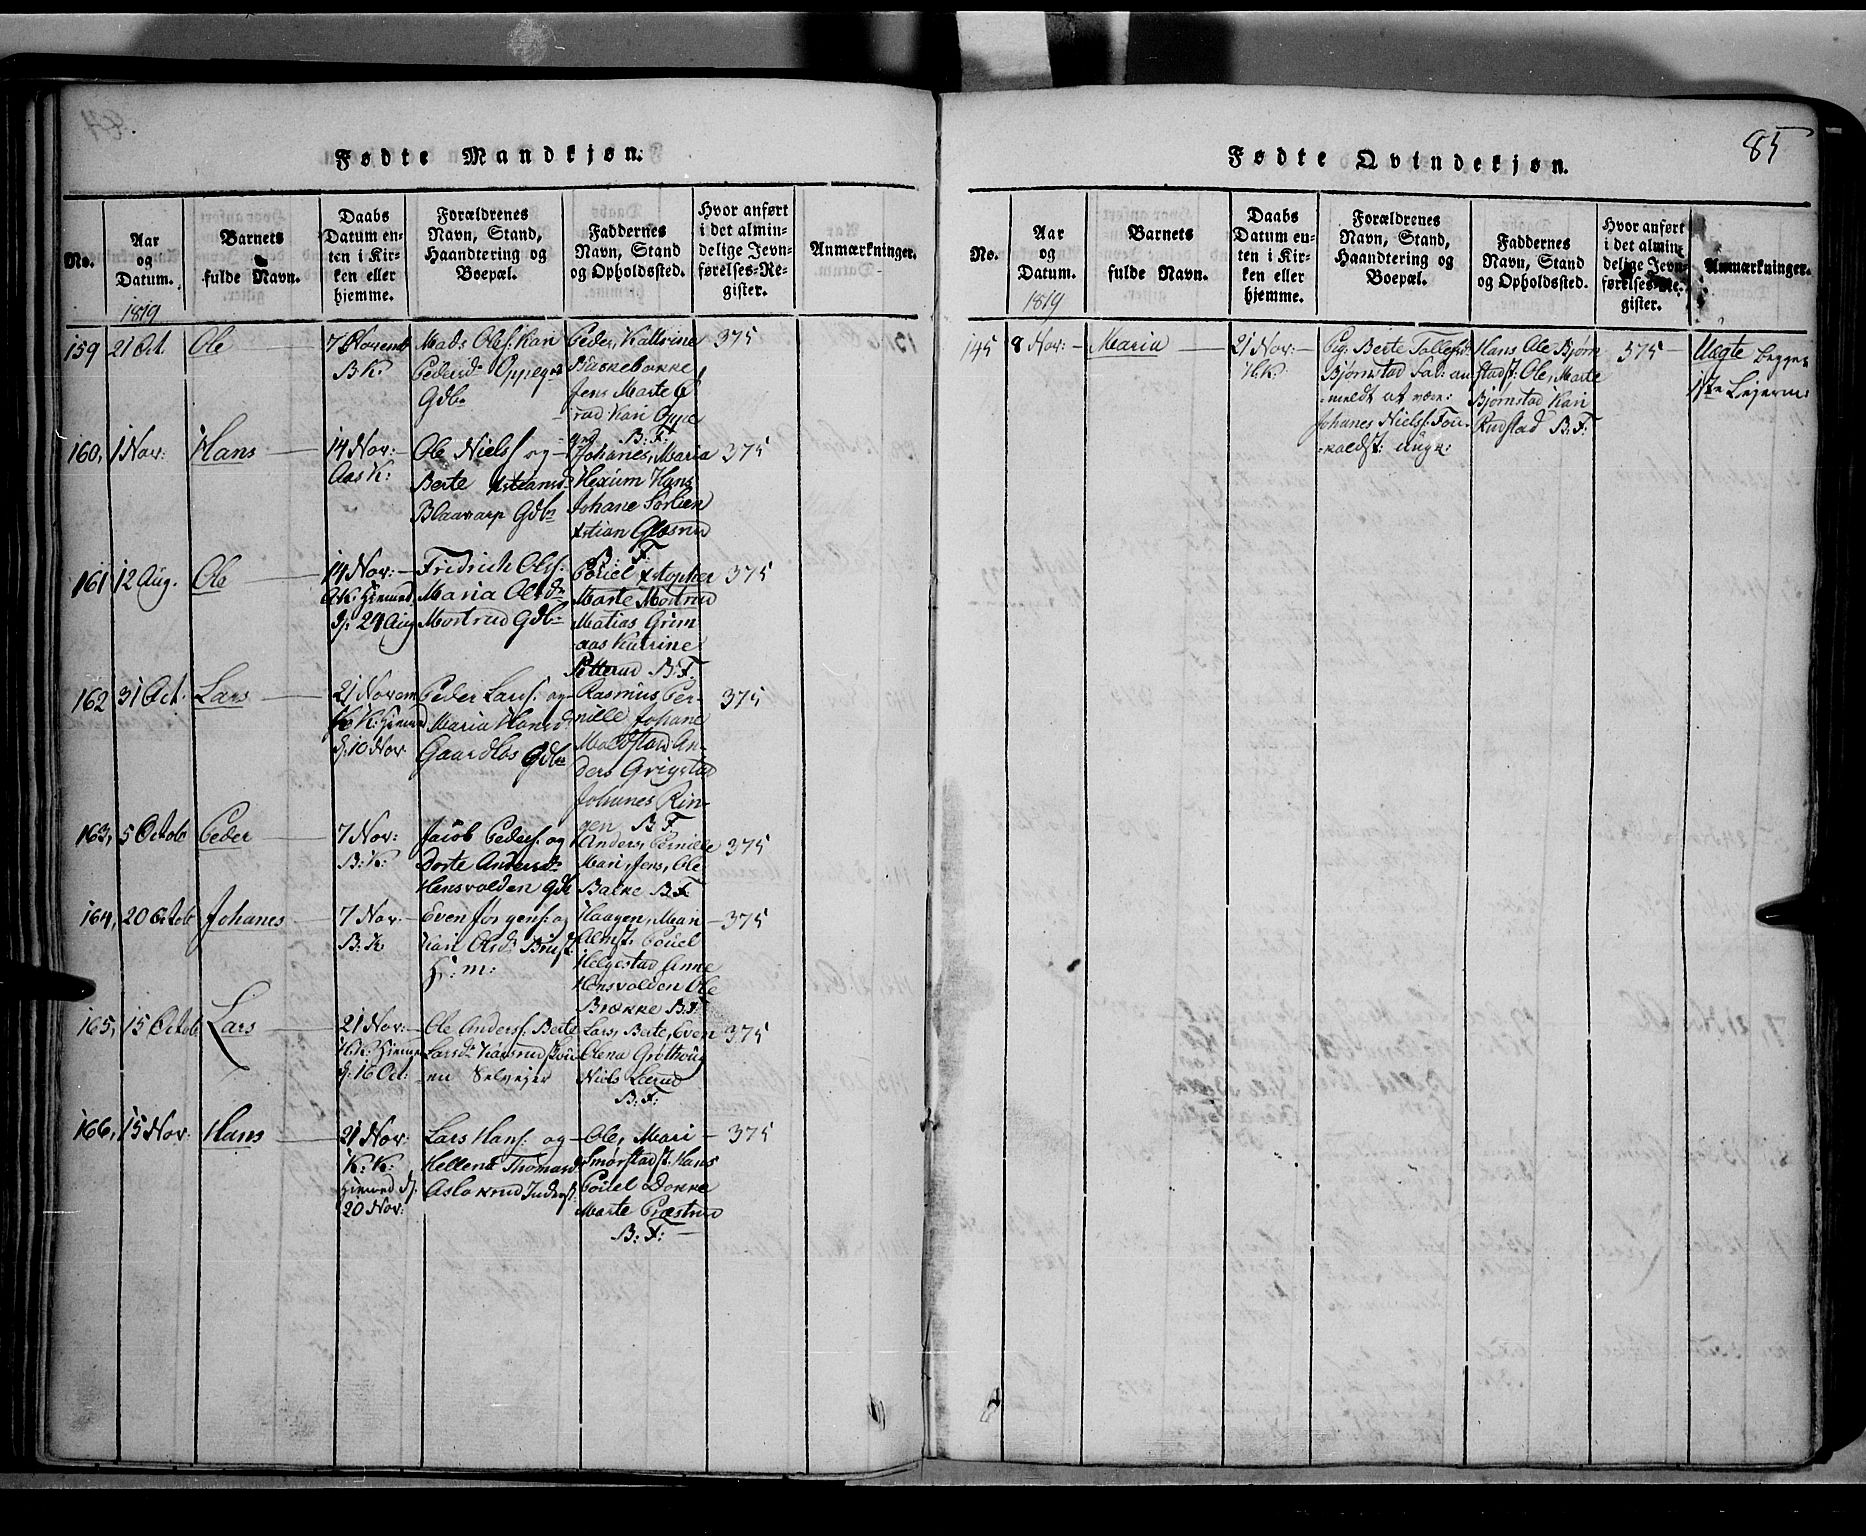 Fødte Mandkjøn.
No.
Aar
og
Datum.
Barnets
fulde Navn.
Daabs
Datum en-
ten i Kir-
ken eller
hjemme.
Forældrenes
Navn, Stand,
Haandtering og
Boepæl.
Faddernes
Navn, Stand
og Opholdssted.
Hvor anført
i det almin-
delige Jevn-
førelses-Re-
gister.
Anmærkninger.
1819
159
21 Oct.
Ole
7 Novemb
B K:
Mads Ols: Kari
Pedersd: Oppegrd
Gdbr
Peder, Kattrine
Buskebakke
Jens Marte
Kari Oppe
grd B: F:
375
160,
1 Nov:
Hans
14 Nov:
Aas K:
Ole Niels: og
Berte Xstiansd
Blaavarp Gdbr
Johanes, Maria
Hexum Hans
Johane Sørlien
Xstian Glæsrud
B: F:
375
161
12 Aug.
Ole
14 Nov:
AK. Hiemed
d: 24 Aug
Fridrich Ols:
Maria Olsdr
Mostrud Gdbr
Povel Xstopher
Marte Mostrud
Matias Grim
aas Katrine
Petterud B: F.
375
162
31 Oct.
Lars
21 Novem
K: Hiemed
d: 10 Nov
Peder Lars: og
Maria Hansd
Gaardløs Gdbr
Rasmus Per-
nille Johane
Maldstad An-
ders Grigstad
Johanes Rin-
gen B: F.
375
163,
5 Octob
Peder
7 Nov:
B: K:
Jacob Peders: og
Dorte Andersdr
Hensvolden Gdb
Anders, Pernille
Mari, Jens, Ole
Balke B F.
375
164,
20 Octob
Johanes
7 Nov:
B: K
Even Jørgens: og
Kari Olsd:
H: m:
Haagen, Mari
Almst: Povel
Helgestad Anne
Hensvolden Ole
Brække B: F:
375
165,
15 Octob
Lars
21 Nov:
H.K: Hieme
d: 16 Oct:
Ole Anders: Berte
Larsdr
en Selvejer
Lars, Berte, Even
Olena Grøthoug
Niels Lærud
B: F:
375
166,
15 Nov:
Hans
21 Nov:
K: K:
Hiemed d:
20 Nov:
Lars Hans: og
Hellene Thomasd
Aslaksrud Inderst:
Ole, Mari
Smørstadst. Hans
Povel Dokke
Marte Præstrud
B: F:
375
85
Fødte Qvindekjøn.
No.
Aar
og
Datum.
Barnets
fulde Navn.
Daabs
Datum en-
ten i Kir-
ken eller
hjemme.
Forældrenes
Navn, Stand,
Haandtering og
Boepæl.
Faddernes
Navn, Stand
og Opholdssted.
Hvor anført
i det almin-
delige Jevn-
førelses-Re-
gister.
Anmærkninger.
1819
145
8 Nov:
Maria
21 Nov:
H: K:
Pig: Berte Tollefsd:
Bjørnstad Fad: an
meldt at være
Johanes Niels: Toi-
kaldst: ungk:
Hans Ole Bjørn
stadst: Ole, Marte
Bjørnstad Kari
Rudstad B: F:
375
Uægte begges
1ste Lejerm: